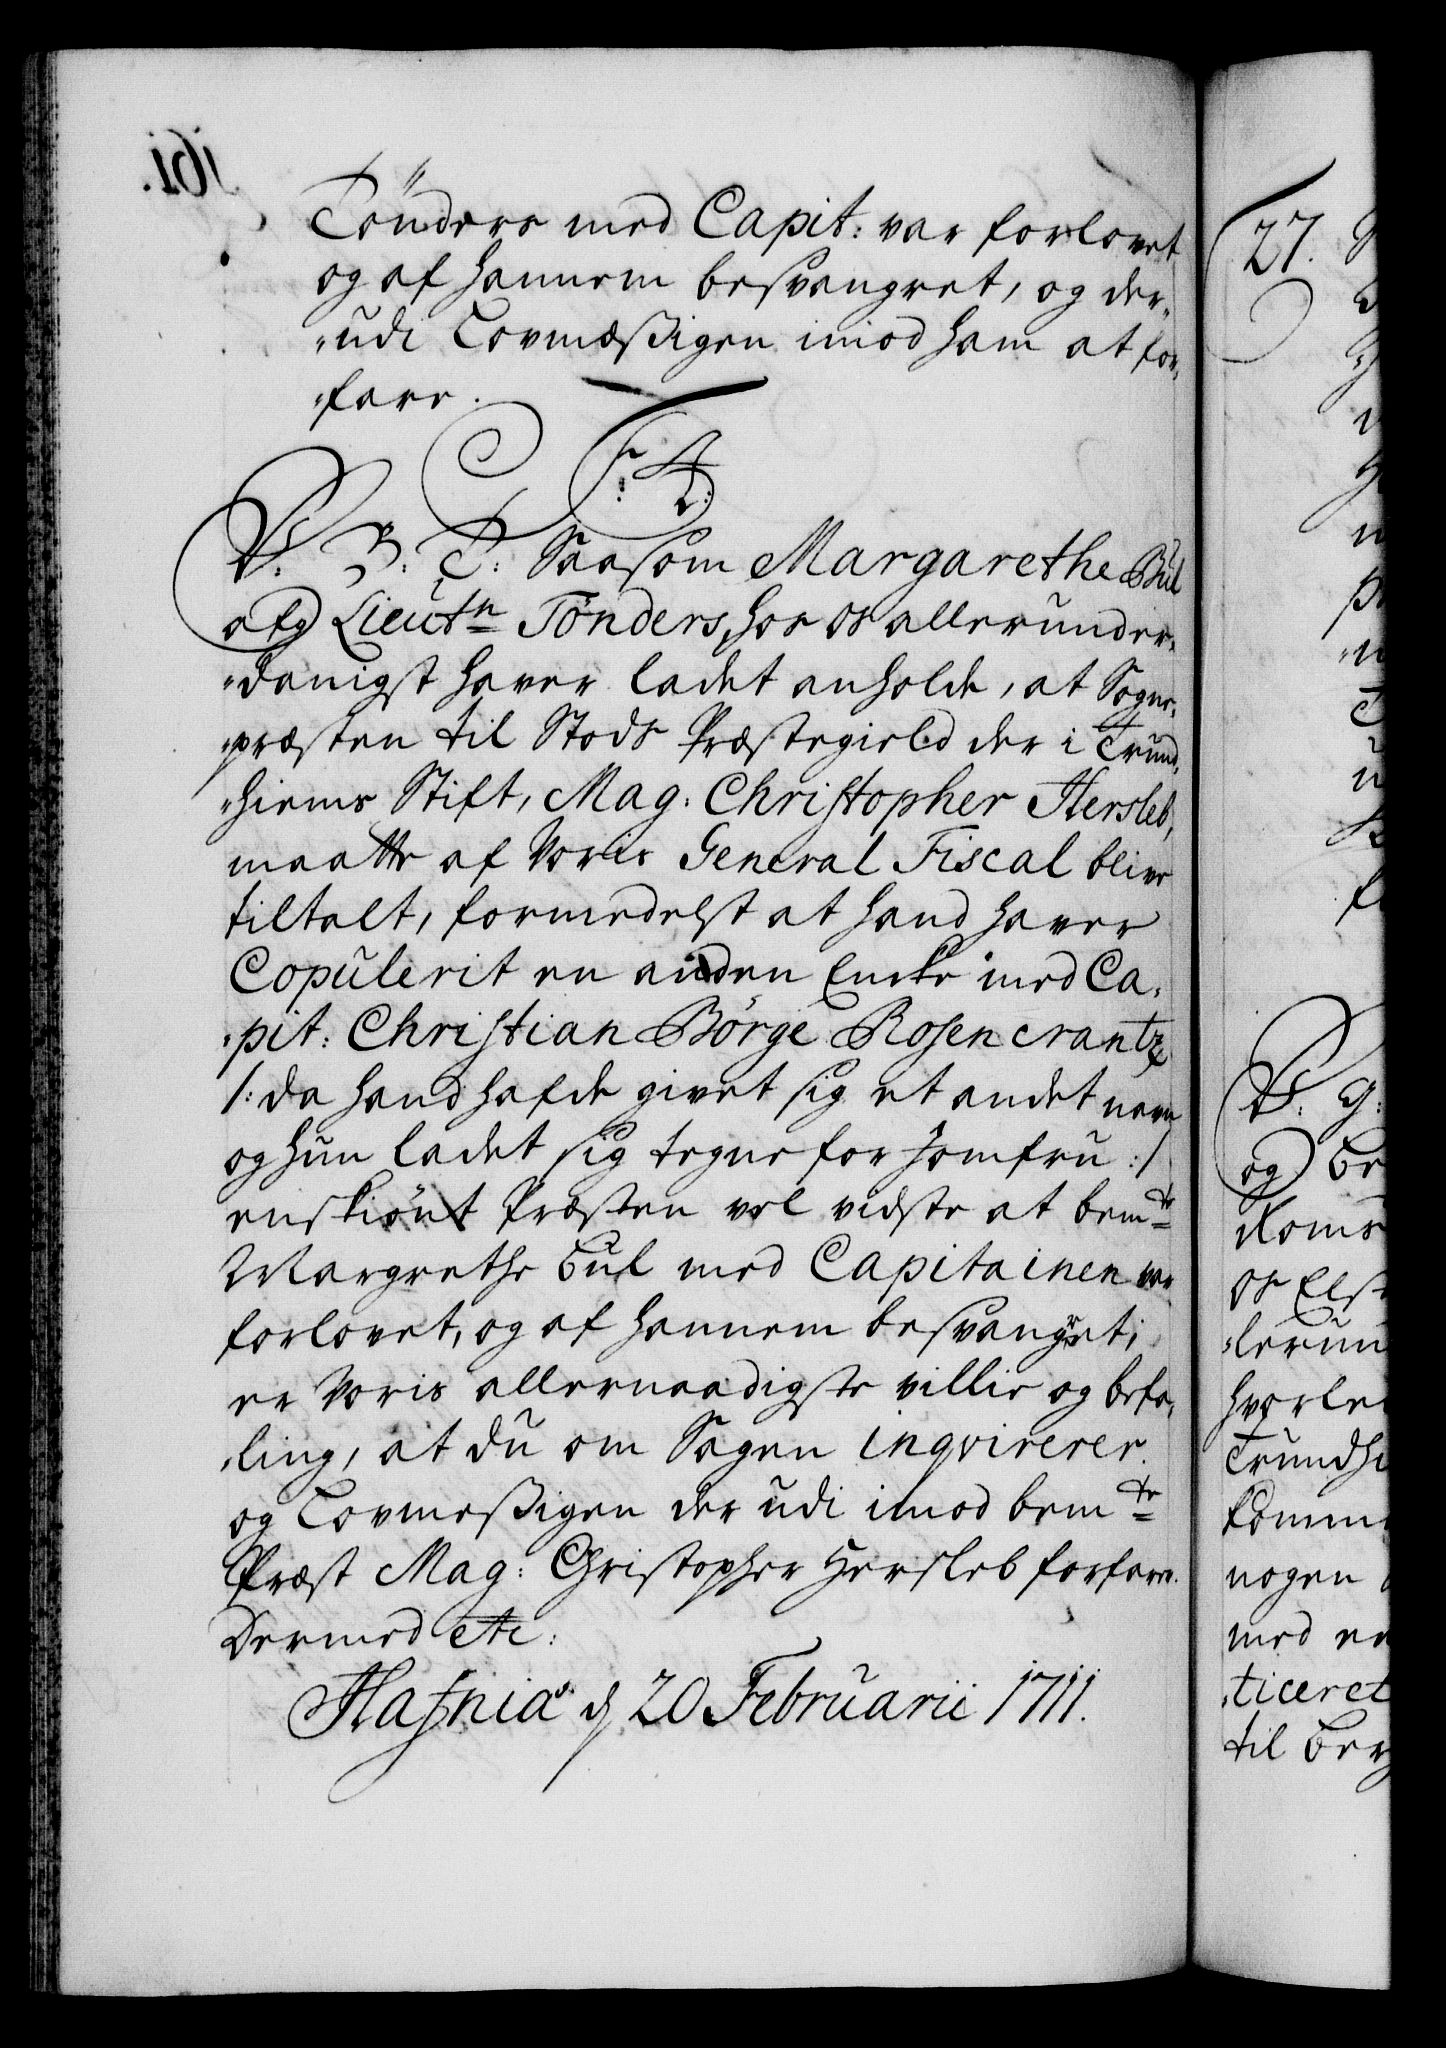 Tönders med Capit: var forlovet
og af hannem besvangret, og der-
-udi Lovmæßigen imod ham at for-
-fare.
F 4
L:
V. G. T: Saasom Margarethe Bul
afg Lieutn Tønders, hos os allerunder-
-danigst haver ladet anholde, at Sogne-
-præsten til Stods Præstegield der i Trund-
-hiems Stift, Mag: Christopher Hersleb,
maatte af Voris General Fiscal blive
tiltalt, formedelst at hand haver
Copulerit en anden Encke med Ca-
-pit: Christian Börge Rosencrantz
/: da hand hafde givet sig et andet navn
og hun ladet sig tegne for Jomfru :/
enskiönt Præsten vel vidste at bemte
Margrethe Bul med Capitainen var
forlovet, og af hannem besvangret;
er Voris allernaadigste villie og befa-
-ling, at du om Sagen inqvirerer
og Lovmeßigen der udi imod bemte
Præst Mag: Christopher Hersleb forfare.
Dermed etc:
Hafniæ d 20 Februarii 1711.
27.
V. G:
og Be
Roms
os Els
-lerun
hvorle
Trundhi
komm
nogen
med en
-ticeret
til Berg